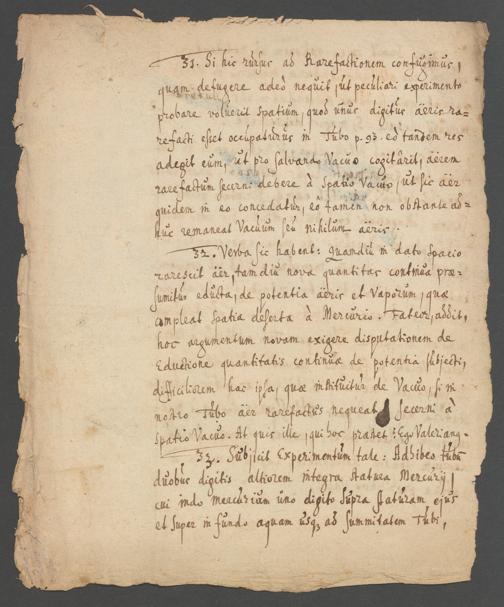 31. Si hic rursus ad Rarefactionem confugimus,
quam defugere adeò nequit, ut peculiari experimento
probare voluerit spatium, quod unus digitus aëris ra=
refacti esset occupaturus in Tubo p. 93. eò tandem res
adegit eum, ut pro salvando Vacuo cogitârit, aërem
rarefactum secerni debere à Spatio Vacuo, ut sic aër
quidem in eo concedatur, eo tamen non obstante ad=
huc remaneat Vacuum seu nihilum aëris.
32. Verba sic habent: Quamdiu in dato spacio
rarescit aër, tamdiu nova quantitas continua præ=
sumitur educta, de potentia aëris et Vaporum, quæ
compleat spatia deserta à Mercurio. Fateor, addit,
hoc argumentum novam exigere disputationem de
Eductione quantitatis continuæ de potentia subjecti,
difficiliorem hac ipsa, quæ instituitur de Vacuo, si in
nostro Tubo aër rarefactus nequeat secerni à
spatio Vacuo. At quis ille, qui hoc præstet? Ego Valeriang.
33. Subjicit Experimentum tale: Adhibeo tubum
duobus digitis altiorem integra statura Mercurij,
cui indo mercurium uno digito supra staturam ejus
et super in fundo aquam usq, ad summitatem Tubi,